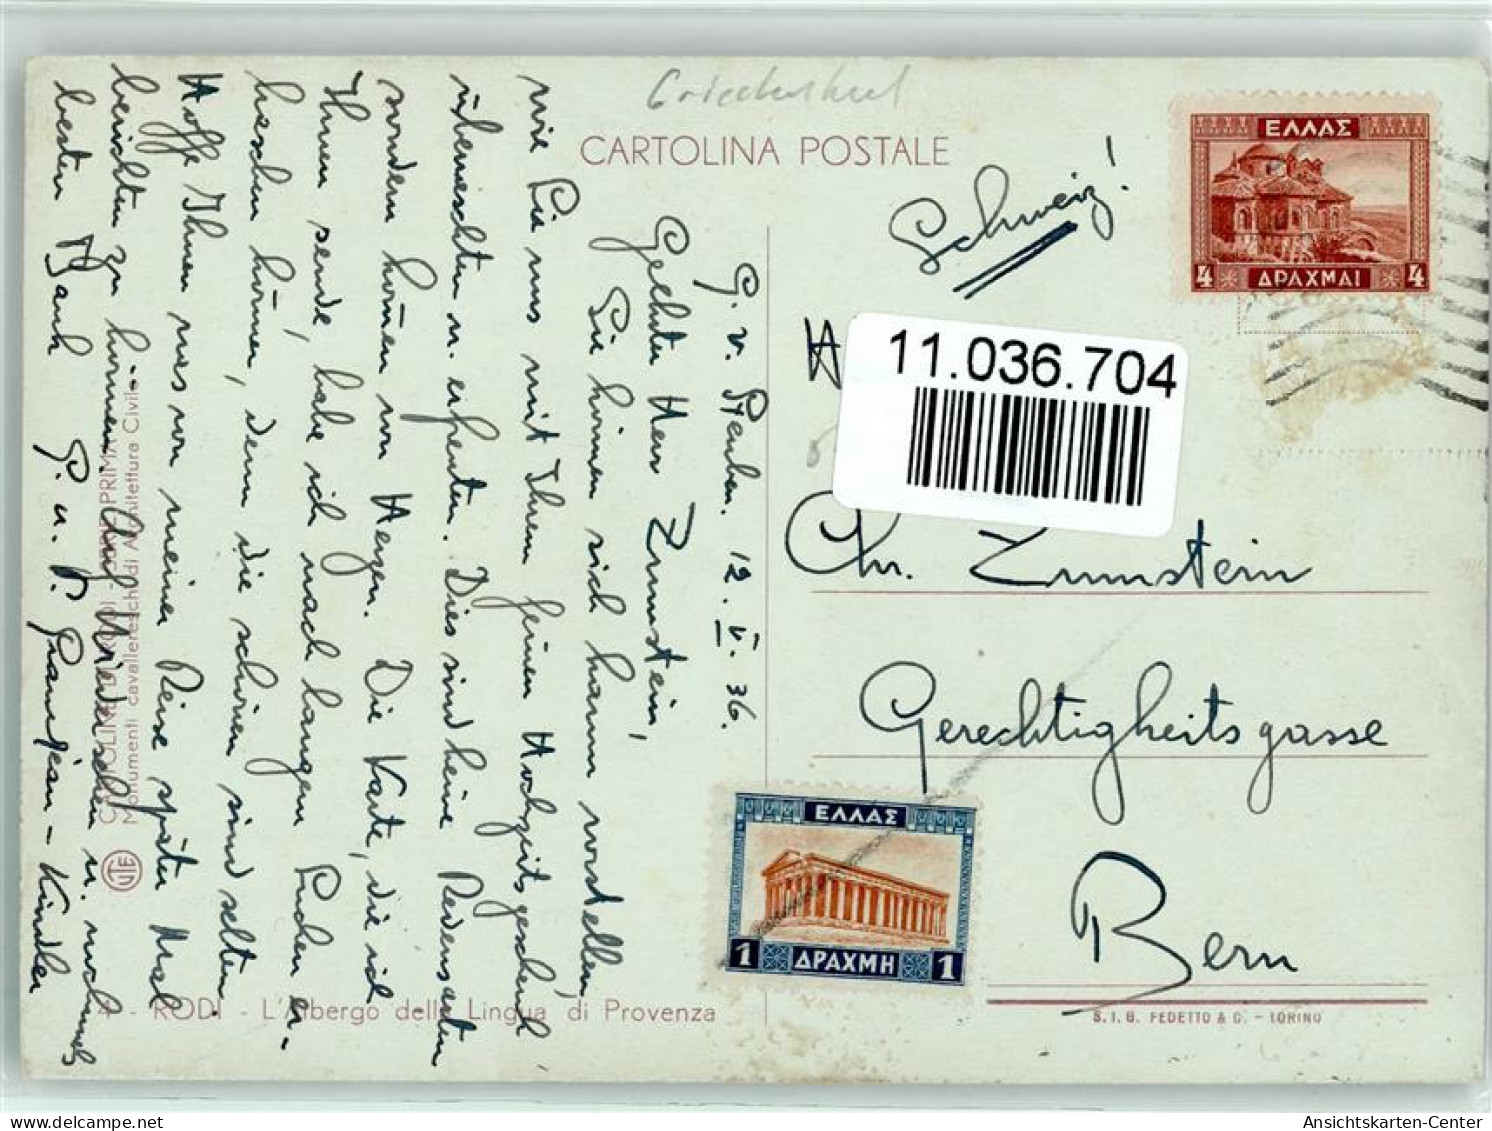 Griechenland
CARTOLINA POSTALE
Schweiz!
ΕΛΛΑΣ
4 ΔΡΑΧΜΑΙ 4
11.036.704
Chr. Zumstein
Gerechtigkeitsgasse
Bern
S.I.G. FEDETTO & C. - TORINO
ΕΛΛΑΣ
1 ΔΡΑΧΜΗ 1
G. v. Steuben. 12. V. 36.
Geehrter Herr Zumstein,
Sie können sich kaum vorstellen,
wie Sie uns mit Ihrem feinen Hochzeitsgeschenk
überraschten u. erfreuten. Dies sind keine Redensarten
sondern kommen von Herzen. Die Karte, die ich
Ihnen sende, habe ich nach langem Suchen er-
haschen können, denn die schönen sind selten.
Hoffe Ihnen was von meiner Reise später Mal
berichten zu können. Auf Wiedersehen u. nochmals
besten Dank G. u. P. Granjean-Kündler
4 - RODI - L'Albergo della Lingua di Provenza
Monumenti cavallereschi di Architettura Civile